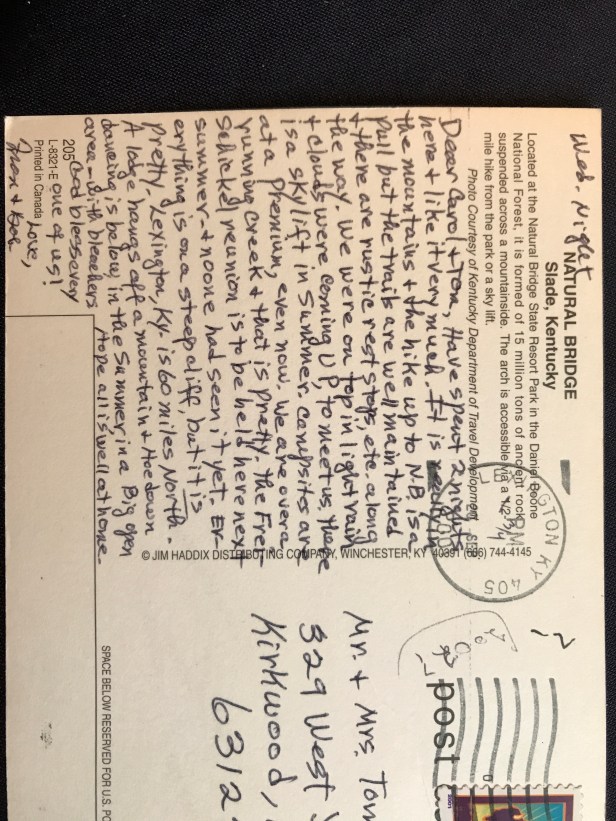 Wed. Night
NATURAL BRIDGE
Slade, Kentucky
Located at the Natural Bridge State Resort Park in the Daniel Boone
National Forest, it is formed of 15 million tons of ancient rock
suspended across a mountainside. The arch is accessible via a 1/2-3/4
mile hike from the park or a sky lift.
Photo Courtesy of Kentucky Department of Travel Development
Dear Carol & Tom, Have spent 2 nights
here & like it very much. It is really in
the mountains & the hike up to N.B. is a
pull but the trails are well maintained
& there are rustic rest stops, etc. along
the way. We were on top in light rain
& clouds were coming up to meet us. There
is a sky lift in summer. Campsites are
at a premium, even now. We are over a
running creek & that is pretty. The Frei-
Schickel reunion is to be held here next
summer - & no one had seen it yet. Ev-
erything is on a steep cliff, but it is
pretty. Lexington, Ky. is 60 miles North.
A lodge hangs off a mountain & Hoe down
dancing is below, in the summer, in a Big open
area - with bleachers
Hope all is well at home.
God bless every
one of us!
Love,
205
L-8321-E
Printed in Canada
© JIM HADDIX DISTRIBUTING COMPANY, WINCHESTER, KY 40391 (606) 744-4145
GTON KY 405
PM
post
Mr. & Mrs. Tom
329 West
Kirkwood,
6312
SPACE BELOW RESERVED FOR U.S. PO